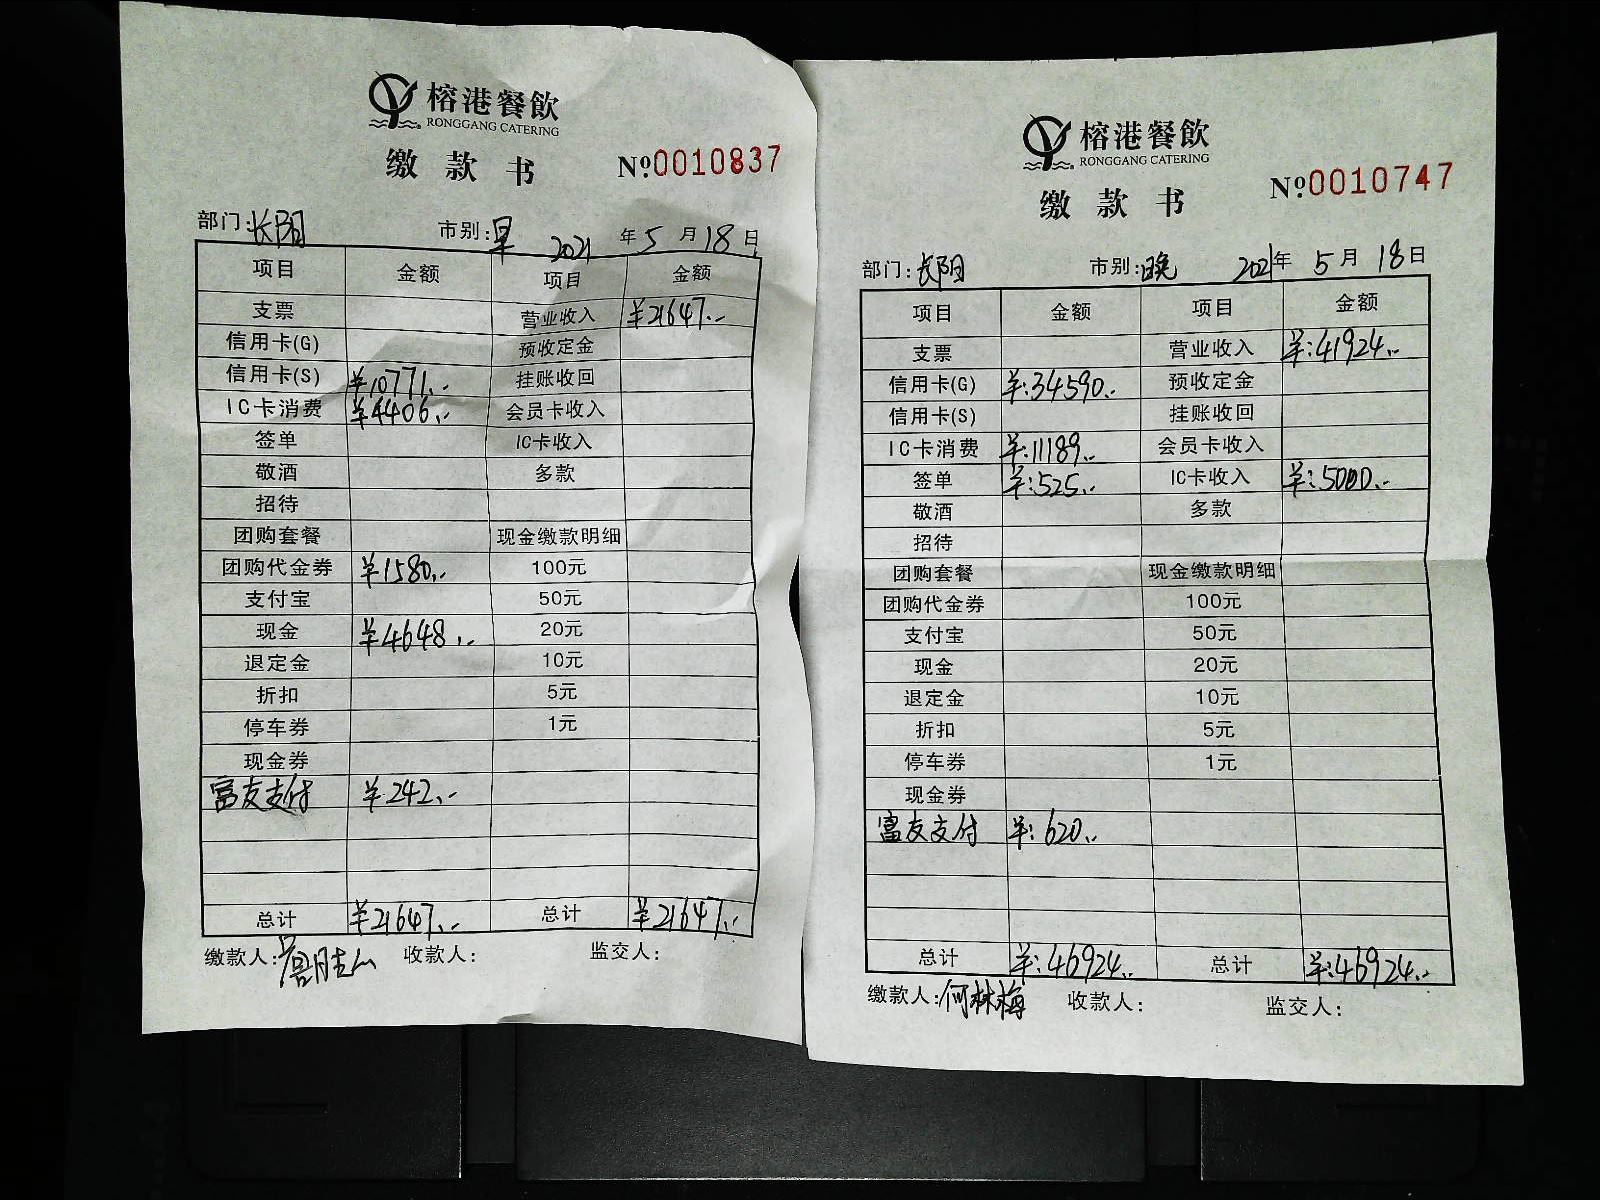 榕港餐飲
RONGGANG CATERING
缴款书 №0010837
部门:长阳 市别:早 2021年5月18日
项目 金额 项目 金额
支票 营业收入 ¥21647.-
信用卡(G) 预收定金
信用卡(S) ¥10771.- 挂账收回
IC卡消费 ¥4406.- 会员卡收入
签单 IC卡收入
敬酒 多款
招待
团购套餐 现金缴款明细
团购代金券 ¥1580.- 100元
支付宝 50元
现金 ¥4648.- 20元
退定金 10元
折扣 5元
停车券 1元
现金券
富友支付 ¥242.-
总计 ¥21647.- 总计 ¥21647.-
缴款人: 收款人: 监交人:
榕港餐飲
RONGGANG CATERING
缴款书 №0010747
部门:长阳 市别:晚 2021年5月18日
项目 金额 项目 金额
支票 营业收入 ¥:41924.-
信用卡(G) ¥:34590.- 预收定金
信用卡(S) 挂账收回
IC卡消费 ¥:11189.- 会员卡收入
签单 ¥:525.- IC卡收入 ¥:5000.-
敬酒 多款
招待
团购套餐 现金缴款明细
团购代金券 100元
支付宝 50元
现金 20元
退定金 10元
折扣 5元
停车券 1元
现金券
富友支付 ¥:620.-
总计 ¥:46924.- 总计 ¥:46924.-
缴款人:何林梅 收款人: 监交人: